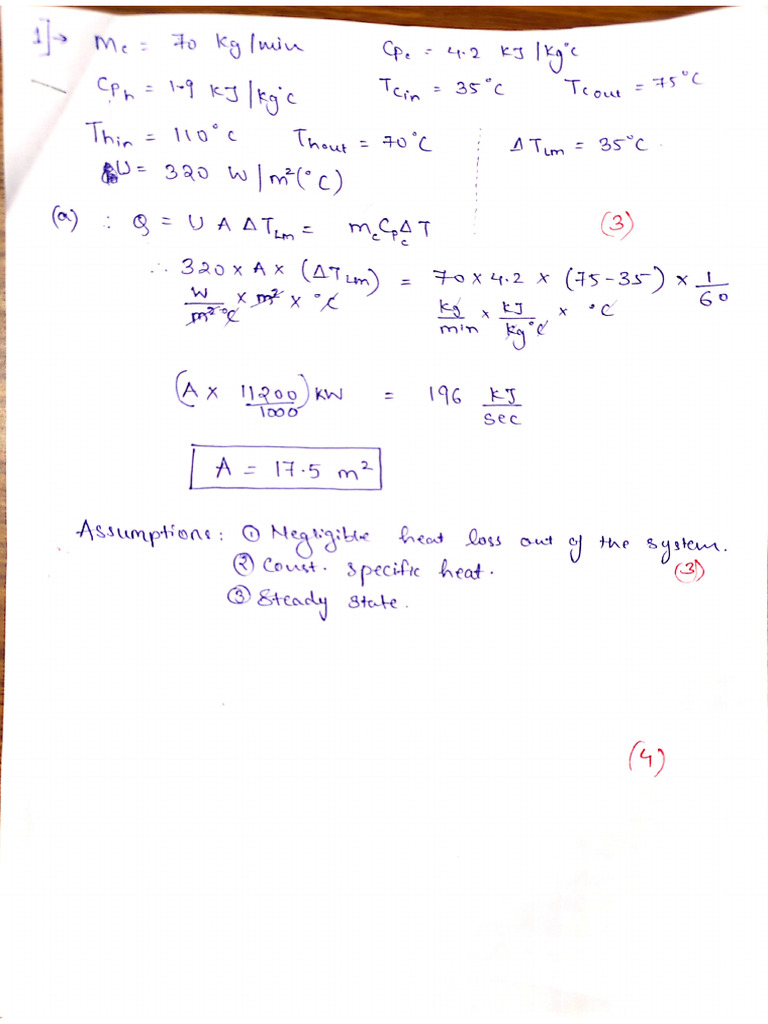 1]→ Mc = 70 Kg/min Cpc = 4.2 KJ/Kg°C
Cph = 1.9 KJ/Kg°C Tcin = 35°C Tcout = 75°C
Thin = 110°C Thout = 70°C ΔTLm = 35°C.
U = 320 W/m²(°C)
(a) ∴ Q = U A ΔTLm = mc Cpc ΔT (3)
∴ 320 × A × (ΔTLm) = 70 × 4.2 × (75-35) × 1/60
W/m²°C × m² × °C Kg/min × KJ/Kg°C × °C
(A × 11200/1000) KW = 196 KJ/sec
A = 17.5 m²
Assumptions: ① Negligible heat loss out of the system.
② Const. specific heat. (3)
③ Steady state.
(4)